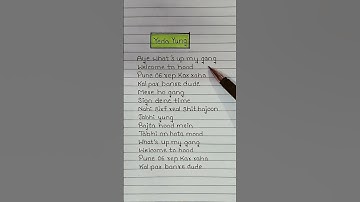 Yeda Yung
Aye what's up my gang
Welcome to hood
Pune 06 rep kar raha
Kal par banke dude
Mere ho gang
Sign dene time
Nahi sirf real shit bajoon
Jabhi yung
Bajta hood mein
Tabhi an hota mood
What's up my gang
Welcome to hood
Pune 06 rep kar raha
Kal par banke dude